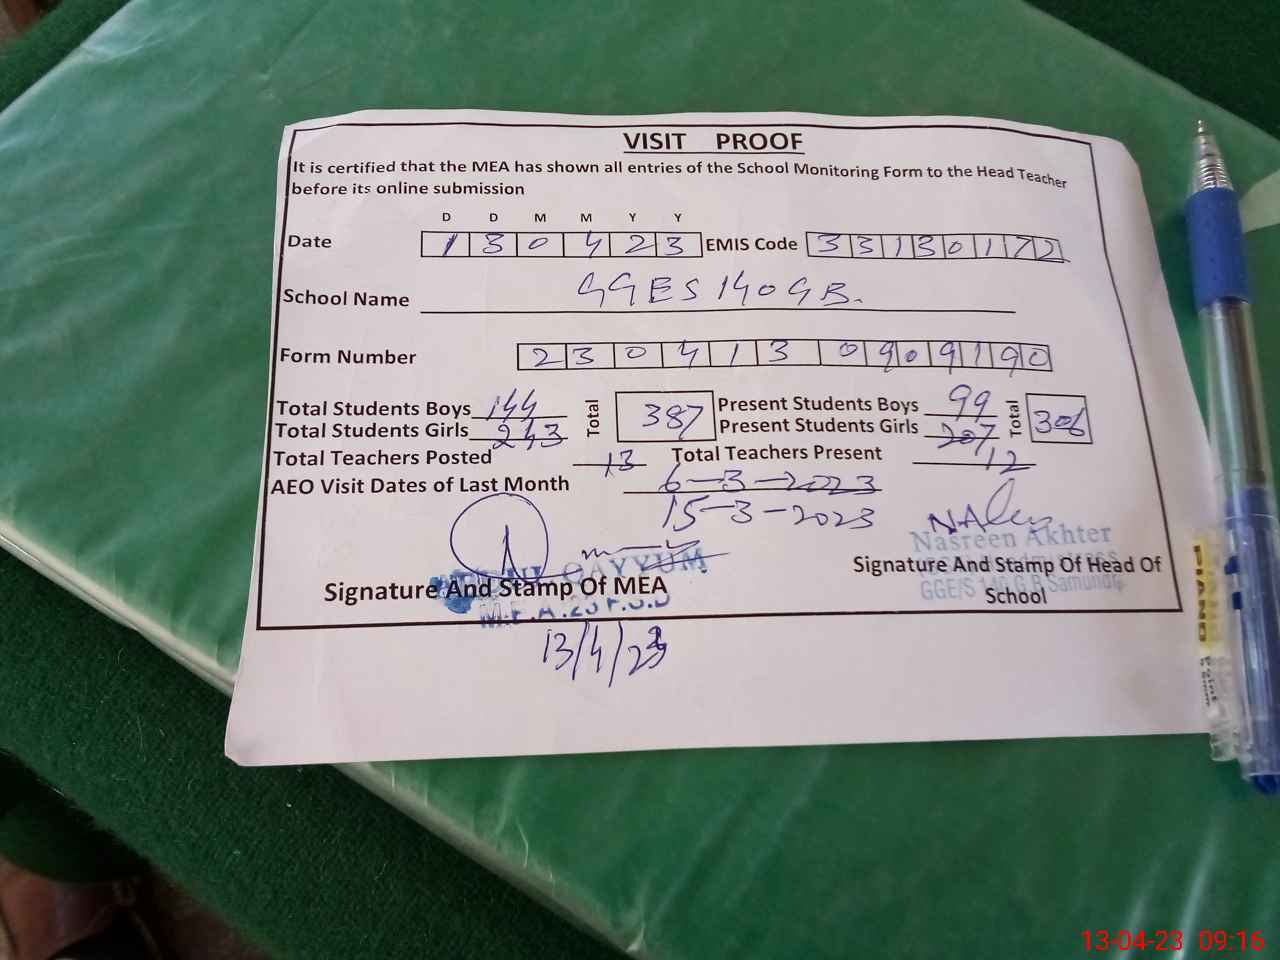 VISIT PROOF
It is certified that the MEA has shown all entries of the School Monitoring Form to the Head Teacher
before its online submission
D D M M Y Y
Date 1 3 0 4 2 3 EMIS Code 3 3 1 3 0 1 7 2
School Name GGES 140 GB.
Form Number 2 3 0 4 1 3 0 9 0 9 1 9 0
Total Students Boys 144 Total 387 Present Students Boys 99 Total 306
Total Students Girls 243 Present Students Girls 207
Total Teachers Posted 13 Total Teachers Present 12
AEO Visit Dates of Last Month 6-3-2023
15-3-2023
Nasreen Akhter
Signature And Stamp Of MEA
QAYYUM
Signature And Stamp Of Head Of
School
GGE/S 140 G.B Samundri
13/4/23
PIANO
13-04-23 09:16